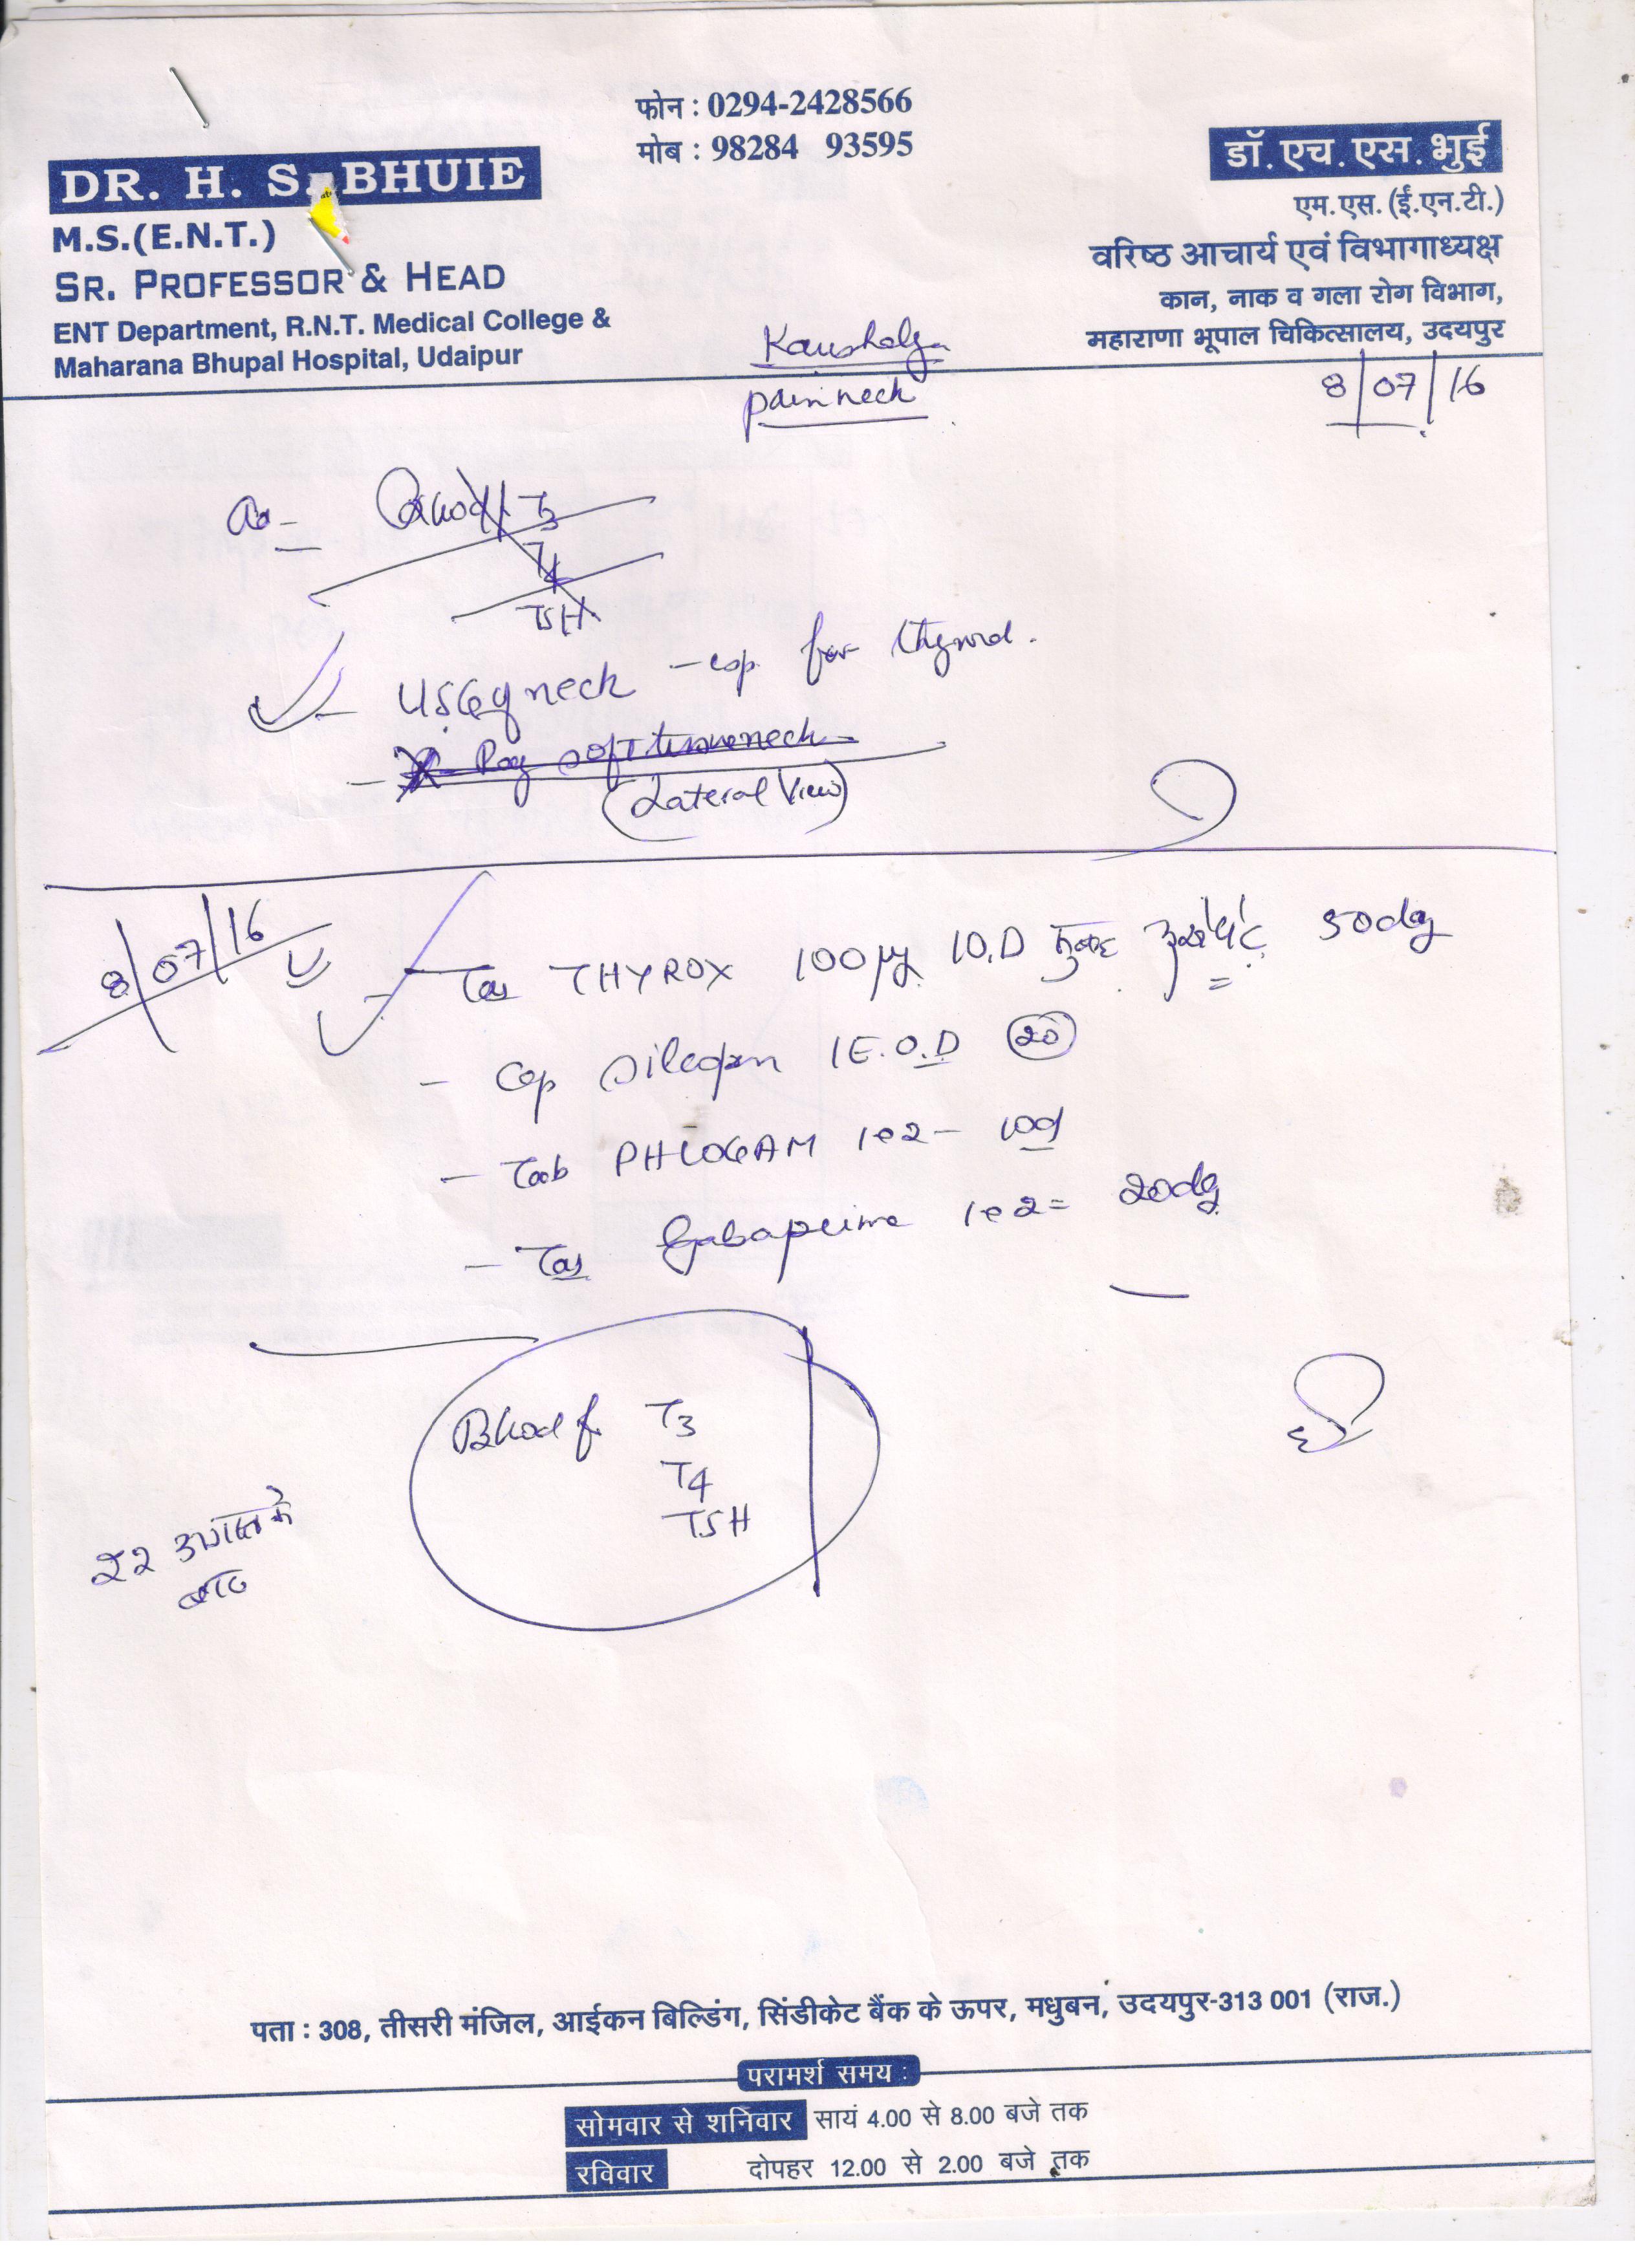 फोन : 0294-2428566
मोब : 98284 93595
DR. H. S. BHUIE
M.S.(E.N.T.)
SR. PROFESSOR & HEAD
ENT Department, R.N.T. Medical College &
Maharana Bhupal Hospital, Udaipur
डॉ. एच. एस. भुई
एम.एस. (ई.एन.टी.)
वरिष्ठ आचार्य एवं विभागाध्यक्ष
कान, नाक व गला रोग विभाग,
महाराणा भूपाल चिकित्सालय, उदयपुर
Kaushalya
pain neck
8/07/16
Blood f T3
T4
TSH
- USG of neck - esp. for thyroid.
- X-Ray soft tissue neck
(Lateral View)
8/07/16
- Tab THYROX 100 μg 1 O.D सुबह 50 dg
- Cap 1 E.O.D 20
- Tab PHLOGAM 1e2 - 10d
- Tab Gabaprime 1e2 = 20dg
Blood f. T3
T4
TSH
22 अगस्त के
बाद
पता : 308, तीसरी मंजिल, आईकन बिल्डिंग, सिंडीकेट बैंक के ऊपर, मधुबन, उदयपुर-313 001 (राज.)
परामर्श समय :
सोमवार से शनिवार सायं 4.00 से 8.00 बजे तक
रविवार दोपहर 12.00 से 2.00 बजे तक